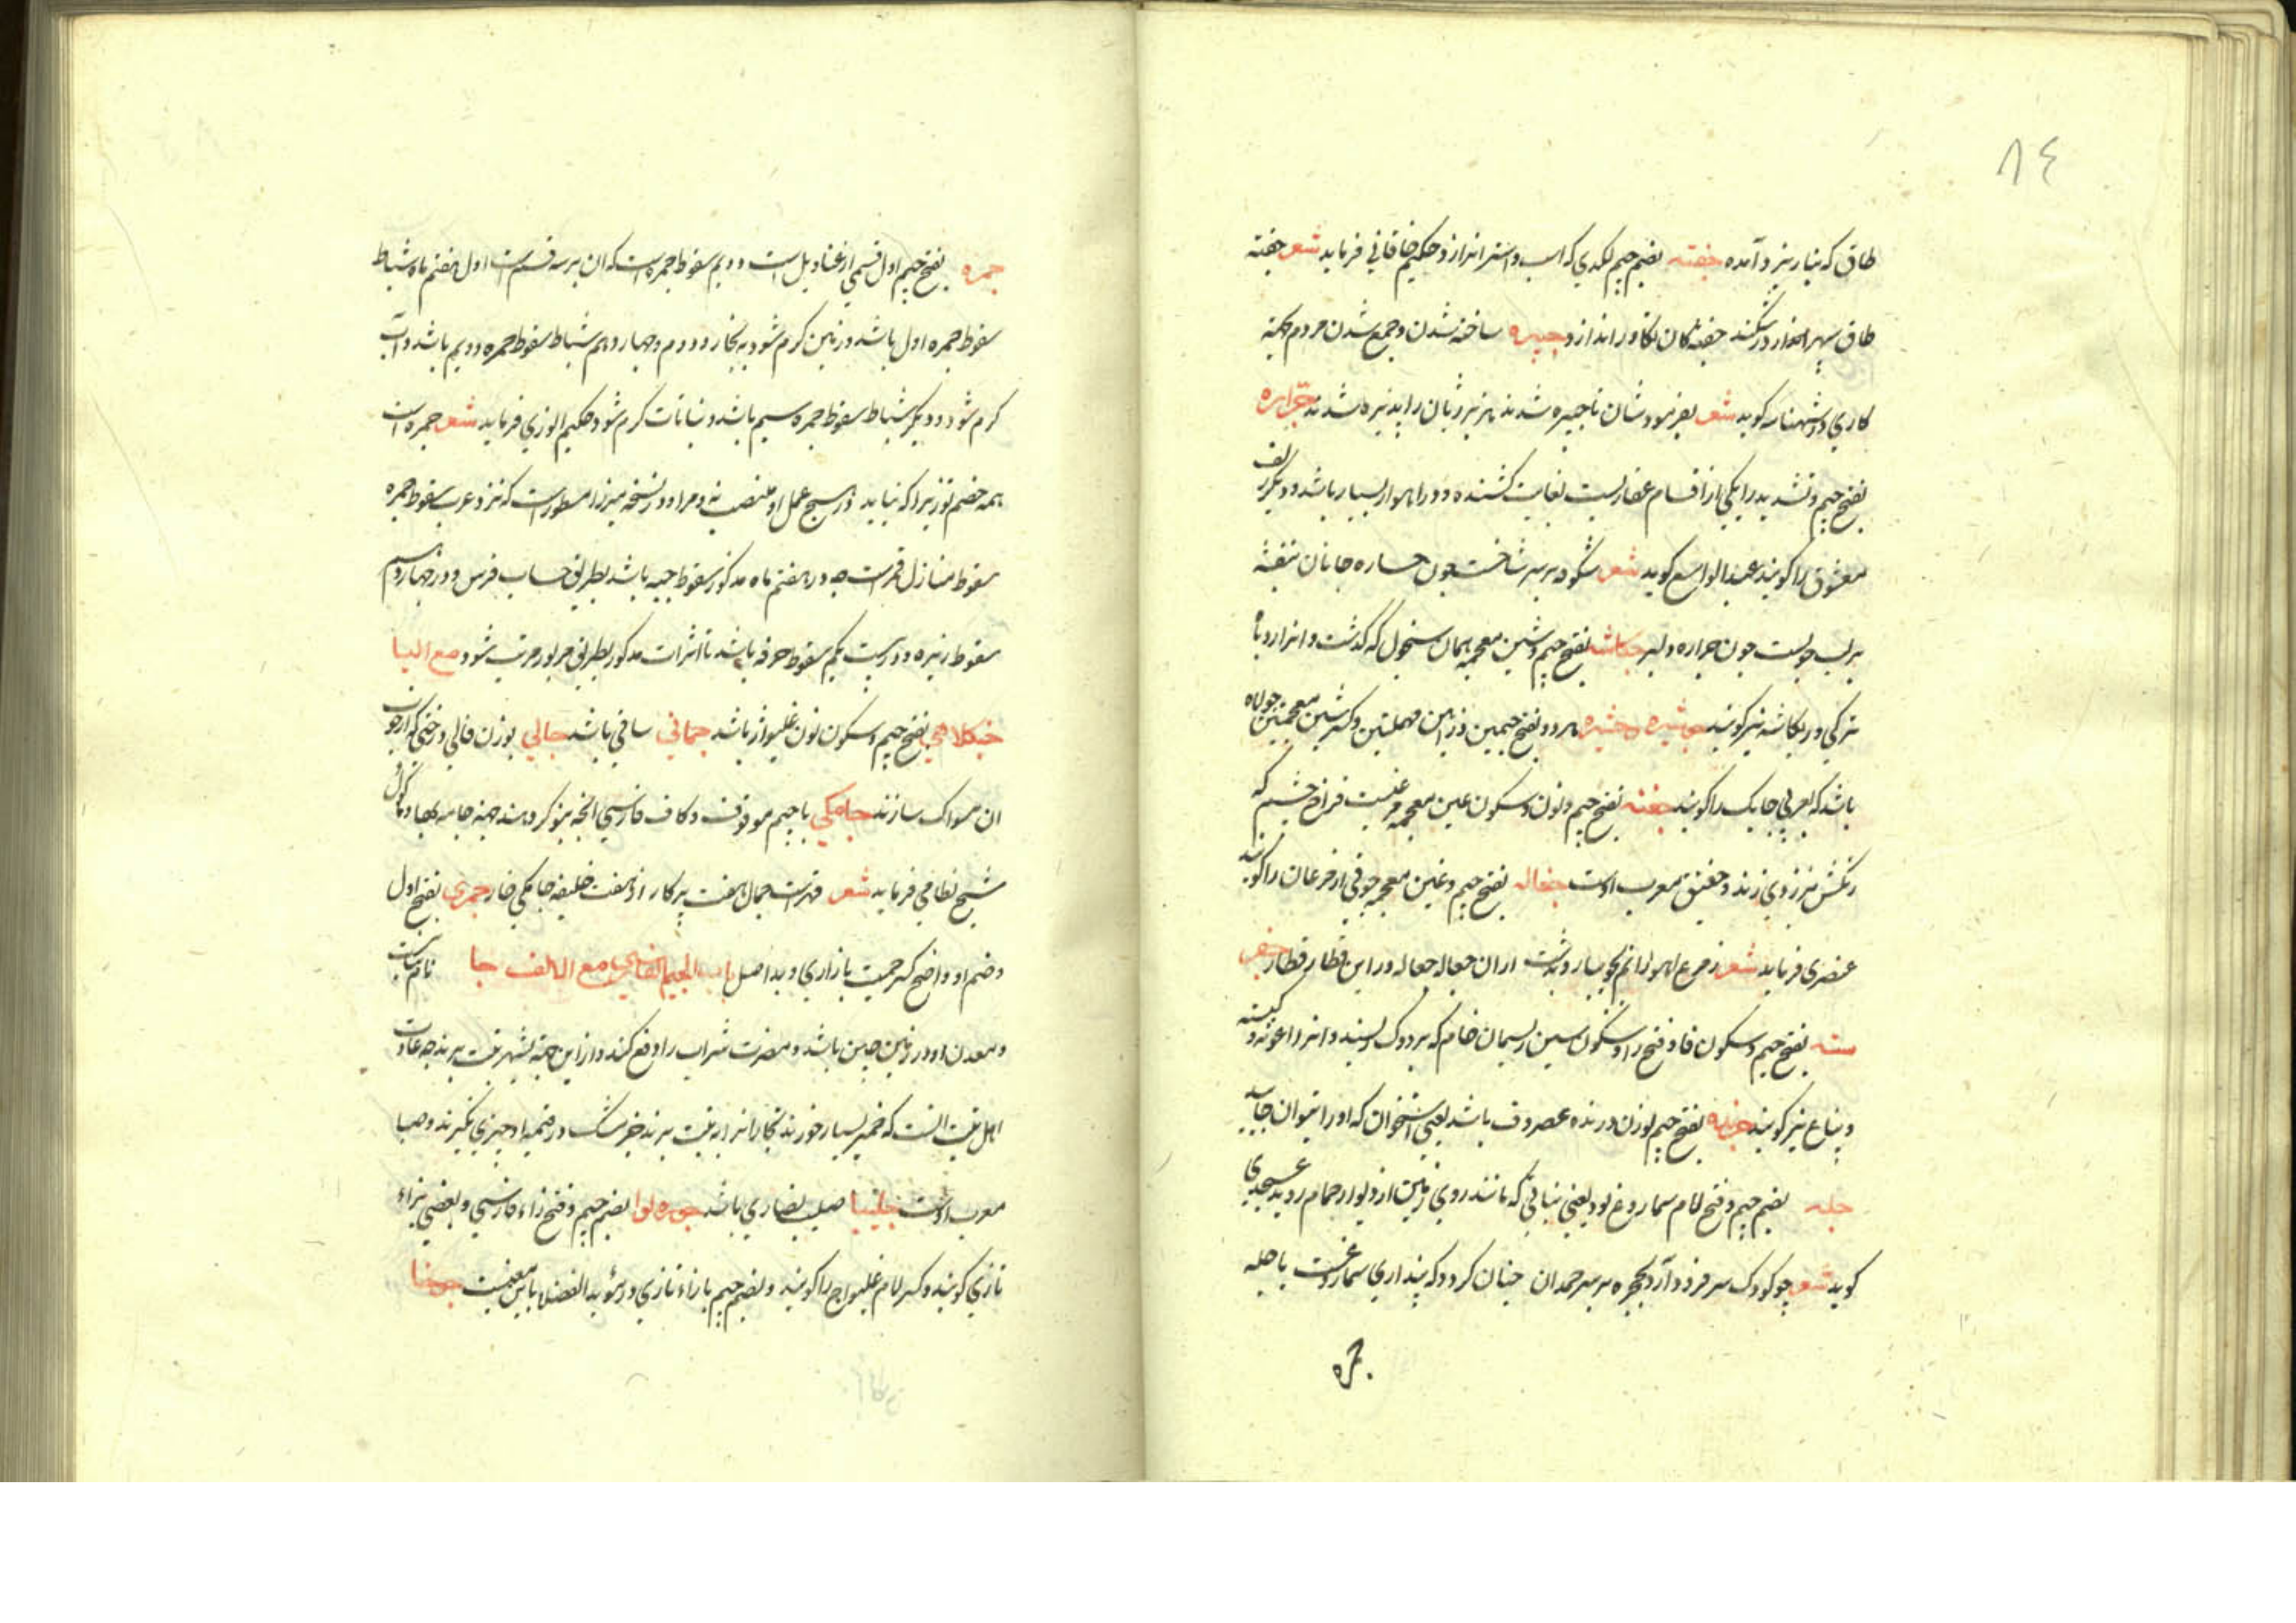 ٨٤
طاق که بنا ریز و آمده جفته بضم جیم لکدی که اسب و استر اندازد حکیم خاقانی فرماید شعر جفته
طاق سپهر در شکند جفته کان تکاور اندازد جبیره ساخته شدن و جمع شدن مردم جهة
کاری در شهنامه کوید شعر بفرمودشان تا جبیره شدند هزبر ژیان را پذیره شدند جرّاره
بفتح جیم و تشدید را یکی از اقسام عقاربست بغایت کشنده و در اهواز بسیار باشد و دیکر زلف
معشوق را کویند عبدالواسع کوید شعر شکوفه بر سر شاخست چون رخساره جانان بنفشه
بر لب جویست چون جراره دلبر جکاشه بفتح جیم و شین معجمه همان سخول که کذشت و انرا در
ترکی و ریکاشه نیز کویند هر دو بفتح جیمین و زاین مهملتین و کسر شین معجمتین جولاه
باشد که بعربی حایک را کویند جغنه بفتح جیم و نون و سکون غین معجمه مرغیست فراخ چشم که
رنکش بزردی زند و جغنق معرب اوست جغاله بفتح جیم و غین معجمه جوقی از مرغان را کویند
عنصری فرماید شعر ز مرغ و اهو رانم بجویبار و بدشت ازان جغاله جغاله وزاین قطار قطار جفر
سته بفتح جیم و سکون فا و فتح را و سکون سین ریسمان خام که بر دوک ریسند و انرا
و بناغ نیز کویند بفتح جیم بوزن درنده غضروف باشد یعنی استخوان که او را بتوان خایید
جله بضم جیم و فتح لام سماروغ بود یعنی نباتی که مانند روی زمین از دیوار حمام روید عسجدی
کوید شعر چو کودک سر فرود آرد بحجره بر سر حمدان چنان کردد که پنداری سماروغست یا جله
جمره
جمره بفتح جیم اول قسمی از غنادیل است دویم سقوط جمره است که ان بر سه قسم است اول هفتم ماه شباط
سقوط جمره اول باشد و زمین کرم شود به بخار و دوم و چهاردهم شباط سقوط جمره دویم باشد و آب
کرم شود و دویکم شباط سقوط جمره سیم باشد و نباتات کرم شود حکیم انوری فرماید شعر جمره است
همه خصم تو زیرا که نیاید در هیچ عمل او منصب و مراد در نسخه میرزا مسطورست که نزد عرب سقوط جمره
سقوط منازل قمرست چه در هفتم ماه مذکور سقوط جبهه باشد بطریق حساب فرس و در چهاردهم
سقوط زبره و در بیست یکم سقوط صرفه باشد تا اثرات مذکور بطریق مزبور مرتب شود مع الیا
جنکلاهی بفتح جیم و سکون نون غلیواژ باشد جمانی ساقی باشد جالی بوزن قالی درختی که از چوب
ان مسواک سازند جامکی با جیم موقوف و کاف فارسی انچه بنوکر دهند جهة جامه بها و ماکول
شیخ نظامی فرماید شعر قدرت جمال هفت پرکار از هفت خلیفه جامکی خوار جمری بفتح اول
و ضم او واضح که جمیت بازاری و بد اصل باب الجیم الفارسی مع الالف چا نام نباتیست
و معدن او در زمین چین باشد و مضرت شراب را دفع کند و ازاین جهة بشهر تبت برند چه عادت
اهل تبت انست که خمر بسیار خورند تجار انرا به تبت برند و جز مشک در ضمیمه او چیزی نکیرند و صبا
معرب اوست چلیپا صلیب نصاری باشد چوزه لوا بضم جیم و فتح زاء فارسی و بعضی بزاء
تازی کویند و کسر لام غلیواج را کویند و بضم جیم با زاء تازی در مؤید الفضلا باین معنیست چوخا